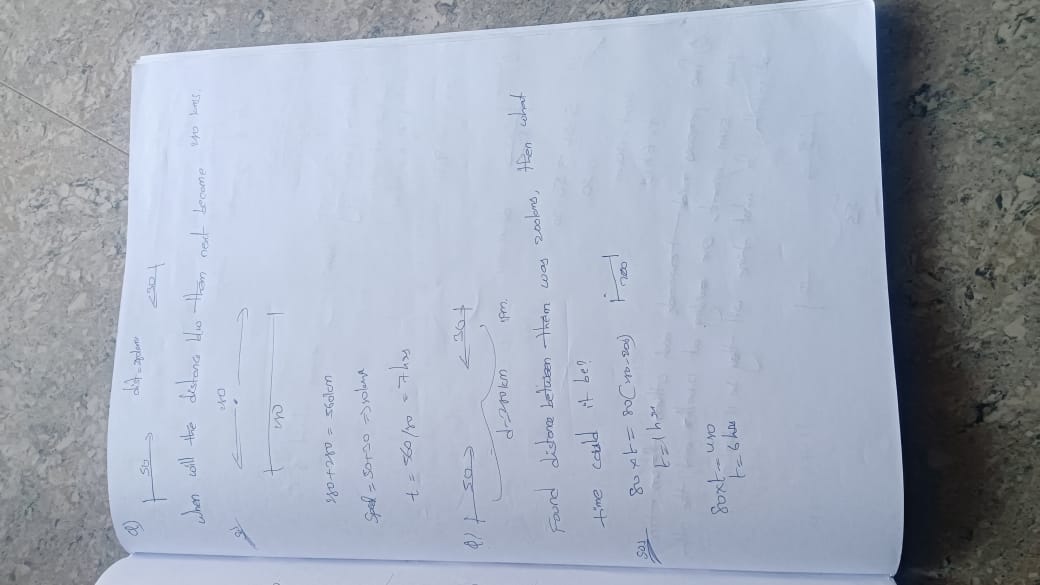 Q)
50
dist = 280km
30
when will the distance b/w them next become 280 kms.
280
280
280+280 = 560km
Speed = 50+30 => 80kmph
t = 560/80 = 7 hrs
Q)
50
30
d = 280km 1pm
Found distance between them was 200kms, then what
time could it be?
Sol
80 x t = 80 (280-200)
200
t = 1 hr
80xt = 480
t = 6 hrs